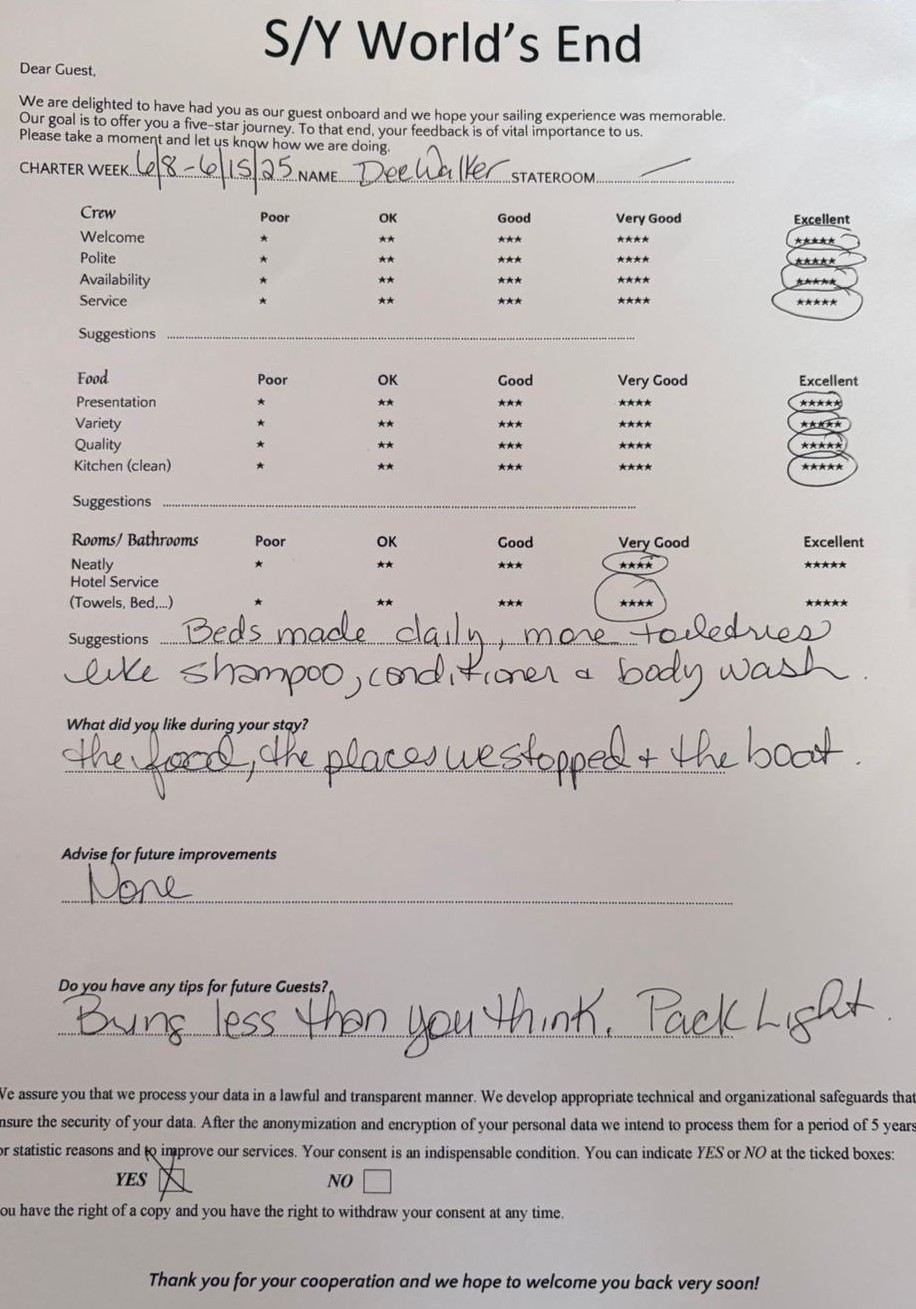 S/Y World's End
Dear Guest,
We are delighted to have had you as our guest onboard and we hope your sailing experience was memorable.
Our goal is to offer you a five-star journey. To that end, your feedback is of vital importance to us.
Please take a moment and let us know how we are doing.
CHARTER WEEK 6/8-6/15/25 NAME Dee Walker STATEROOM —
Crew Poor OK Good Very Good Excellent
Welcome * ** *** **** *****
Polite * ** *** **** *****
Availability * ** *** **** *****
Service * ** *** **** *****
Suggestions
Food Poor OK Good Very Good Excellent
Presentation * ** *** **** *****
Variety * ** *** **** *****
Quality * ** *** **** *****
Kitchen (clean) * ** *** **** *****
Suggestions
Rooms/ Bathrooms Poor OK Good Very Good Excellent
Neatly * ** *** **** *****
Hotel Service
(Towels, Bed,...) * ** *** **** *****
Suggestions Beds made daily, more toiledries
like shampoo, conditioner & body wash.
What did you like during your stay?
the food, the places we stopped + the boat.
Advise for future improvements
None
Do you have any tips for future Guests?
Bring less than you think. Pack Light.
We assure you that we process your data in a lawful and transparent manner. We develop appropriate technical and organizational safeguards that
nsure the security of your data. After the anonymization and encryption of your personal data we intend to process them for a period of 5 years
or statistic reasons and to improve our services. Your consent is an indispensable condition. You can indicate YES or NO at the ticked boxes:
YES X NO
ou have the right of a copy and you have the right to withdraw your consent at any time.
Thank you for your cooperation and we hope to welcome you back very soon!